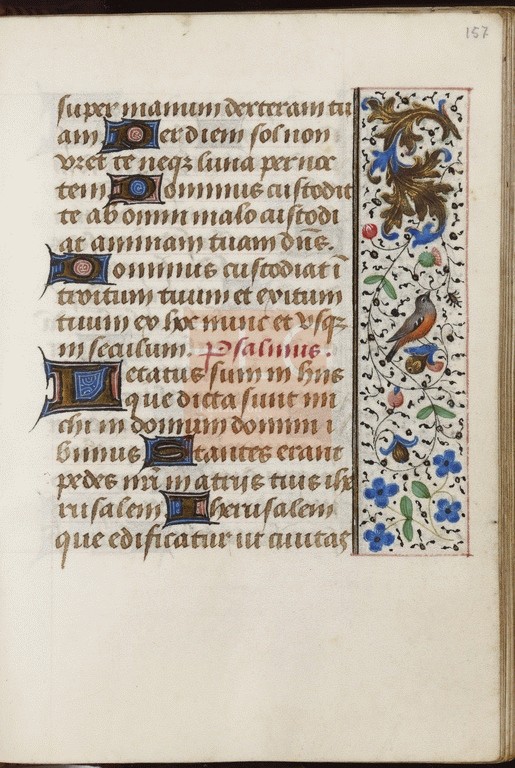 157
super manum dexteram tu
am Per diem sol non
vret te neqz luna per noc
tem Dominus custodit
te ab omni malo custodi
at animam tuam dns.
Dominus custodiat i
troitum tuum et exitum
tuum ex hoc nunc et vsqz
in seculum. Psalmus.
Letatus sum in hiis
que dicta sunt mi
chi in domum domini i
bimus Stantes erant
pedes nri in atrijs tuis ihe
rusalem Iherusalem
que edificatur ut ciuitas